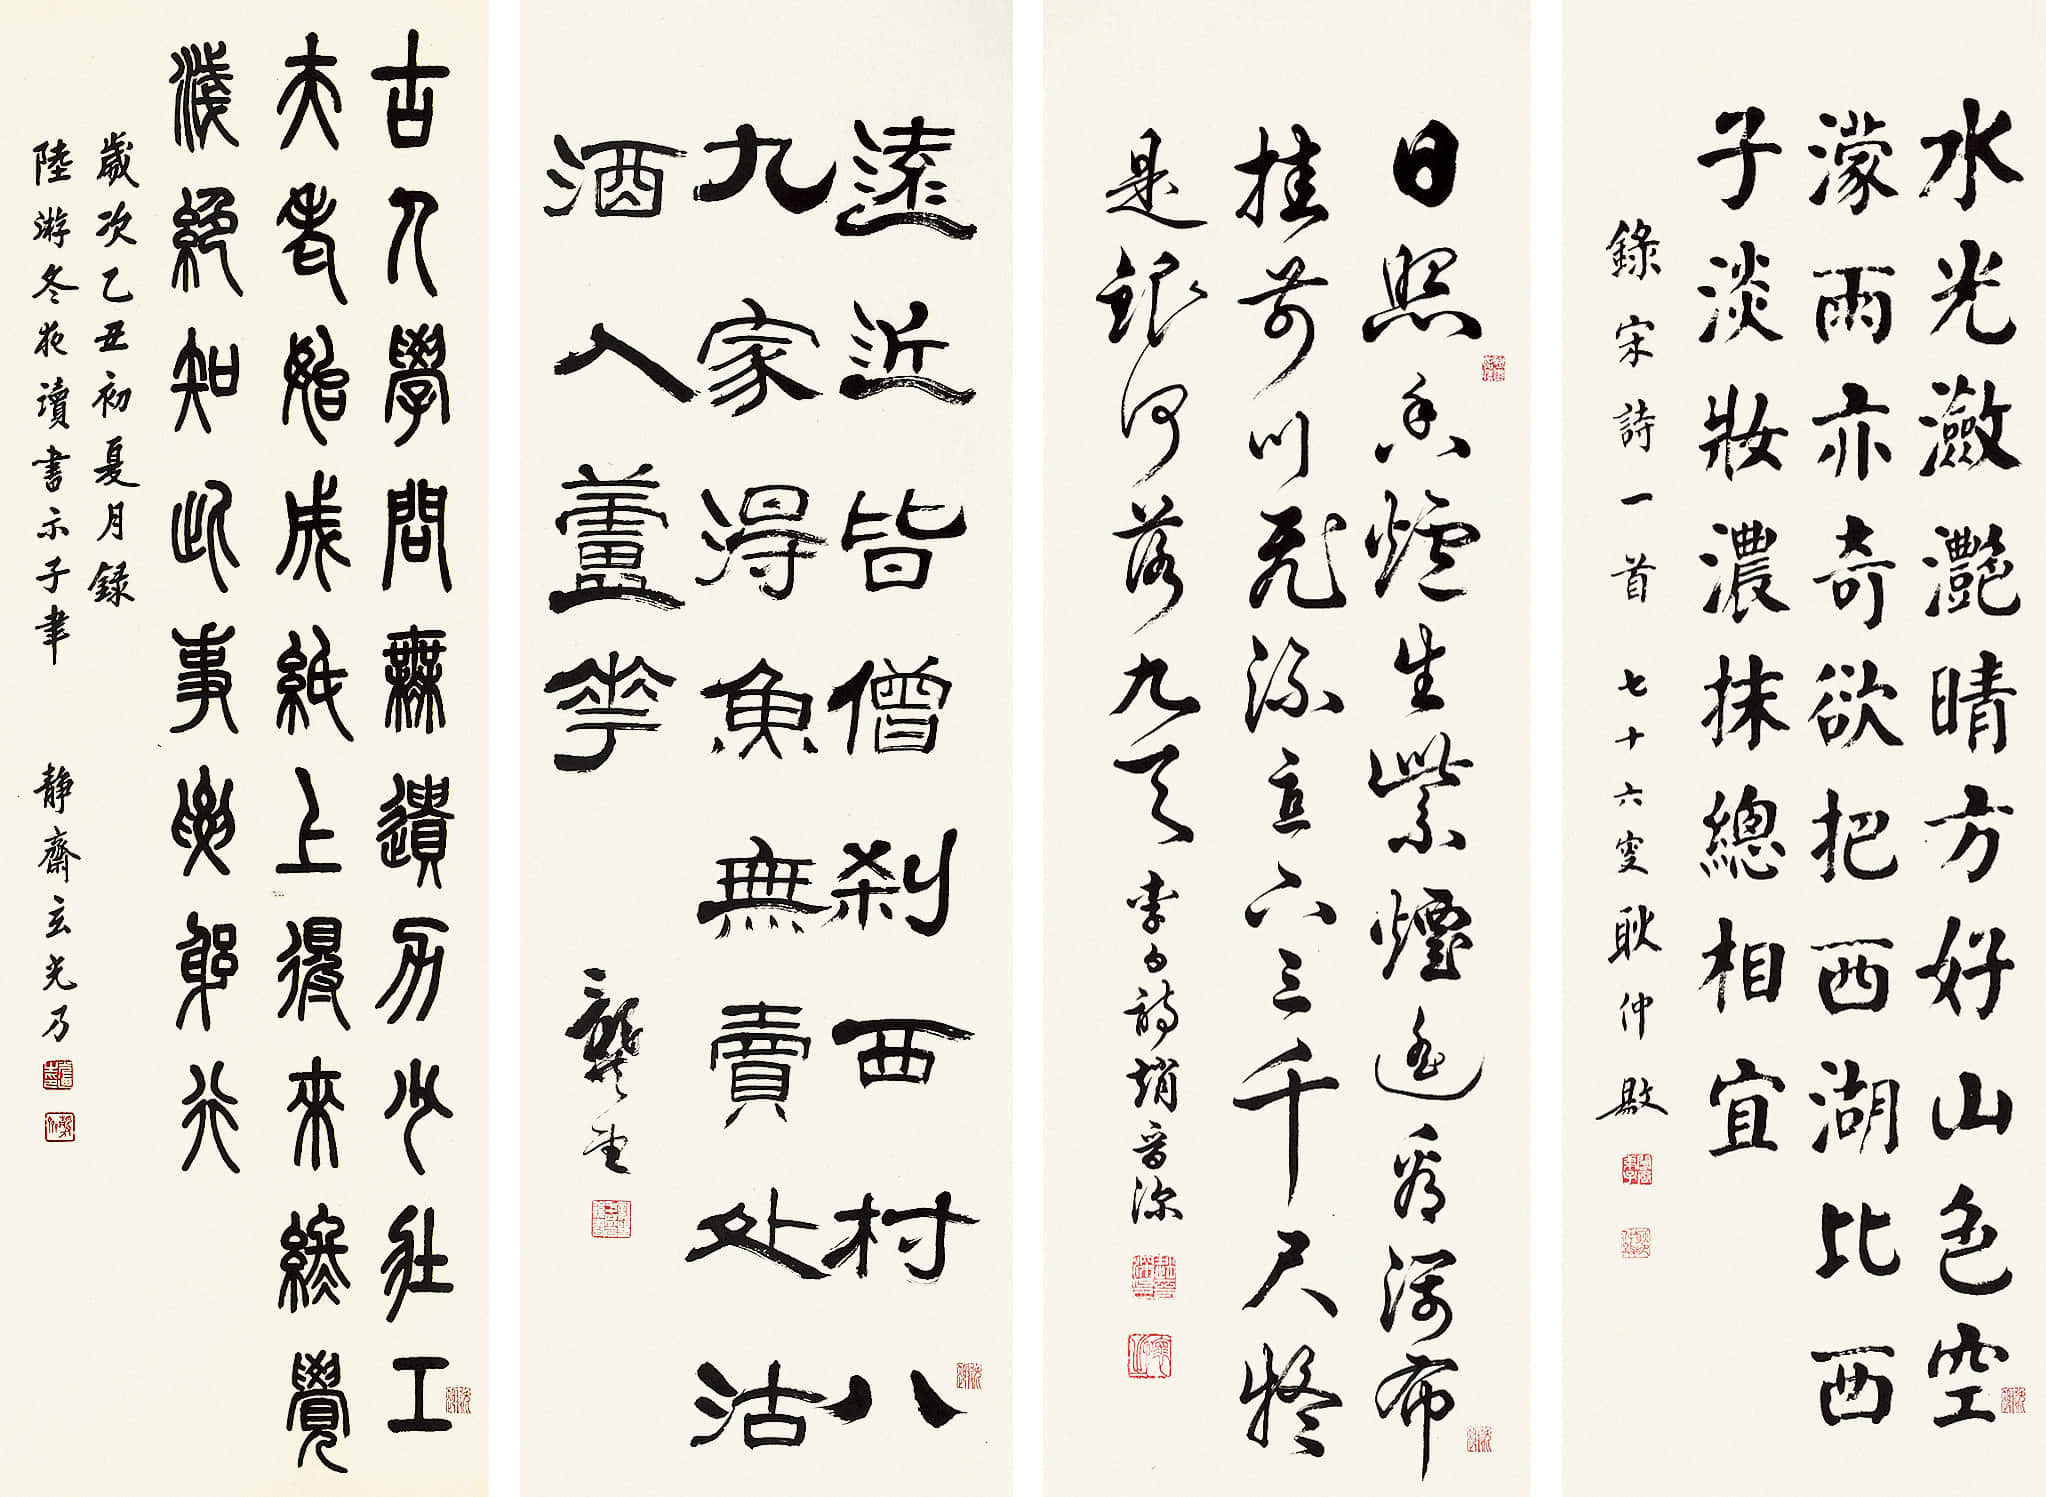 水光瀲灩晴方好山色空
濛雨亦奇欲把西湖比西
子淡妝濃抹總相宜
錄宋詩一首 七十六叟耿仲敭
日照香爐生紫煙遙看瀑布
挂前川飛流直下三千尺疑
是銀河落九天 李白詩
遠近皆僧刹西村八
九家得魚無賣處沽
酒入蘆花
龔望
古人學問無遺力少壯工
夫老始成紙上得來終覺
淺絕知此事要躬行
歲次乙丑初夏月錄
陸游冬夜讀書示子聿 靜齋玄光乃